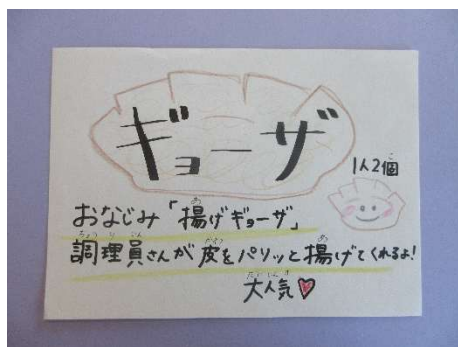 ギョーザ
1人2個
おなじみ「揚げギョーザ」
調理員さんが皮をパリッと揚げてくれるよ!
大人気♡